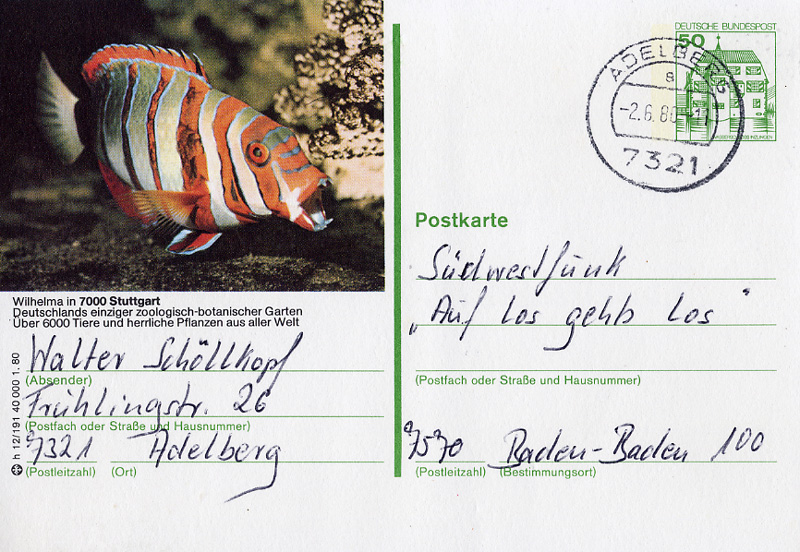 Wilhelma in 7000 Stuttgart
Deutschlands einziger zoologisch-botanischer Garten
Über 6000 Tiere und herrliche Pflanzen aus aller Welt
Walter Schöllkopf
(Absender)
Frühlingstr. 26
(Postfach oder Straße und Hausnummer)
7321 Adelberg
(Postleitzahl) (Ort)
h 12/191 40 000 1. 80
DEUTSCHE BUNDESPOST
50
ADELBERG
a
-2.6.80
7321
Postkarte
Südwestfunk
„Auf los gehts los"
(Postfach oder Straße und Hausnummer)
7570 Baden-Baden 100
(Postleitzahl) (Bestimmungsort)